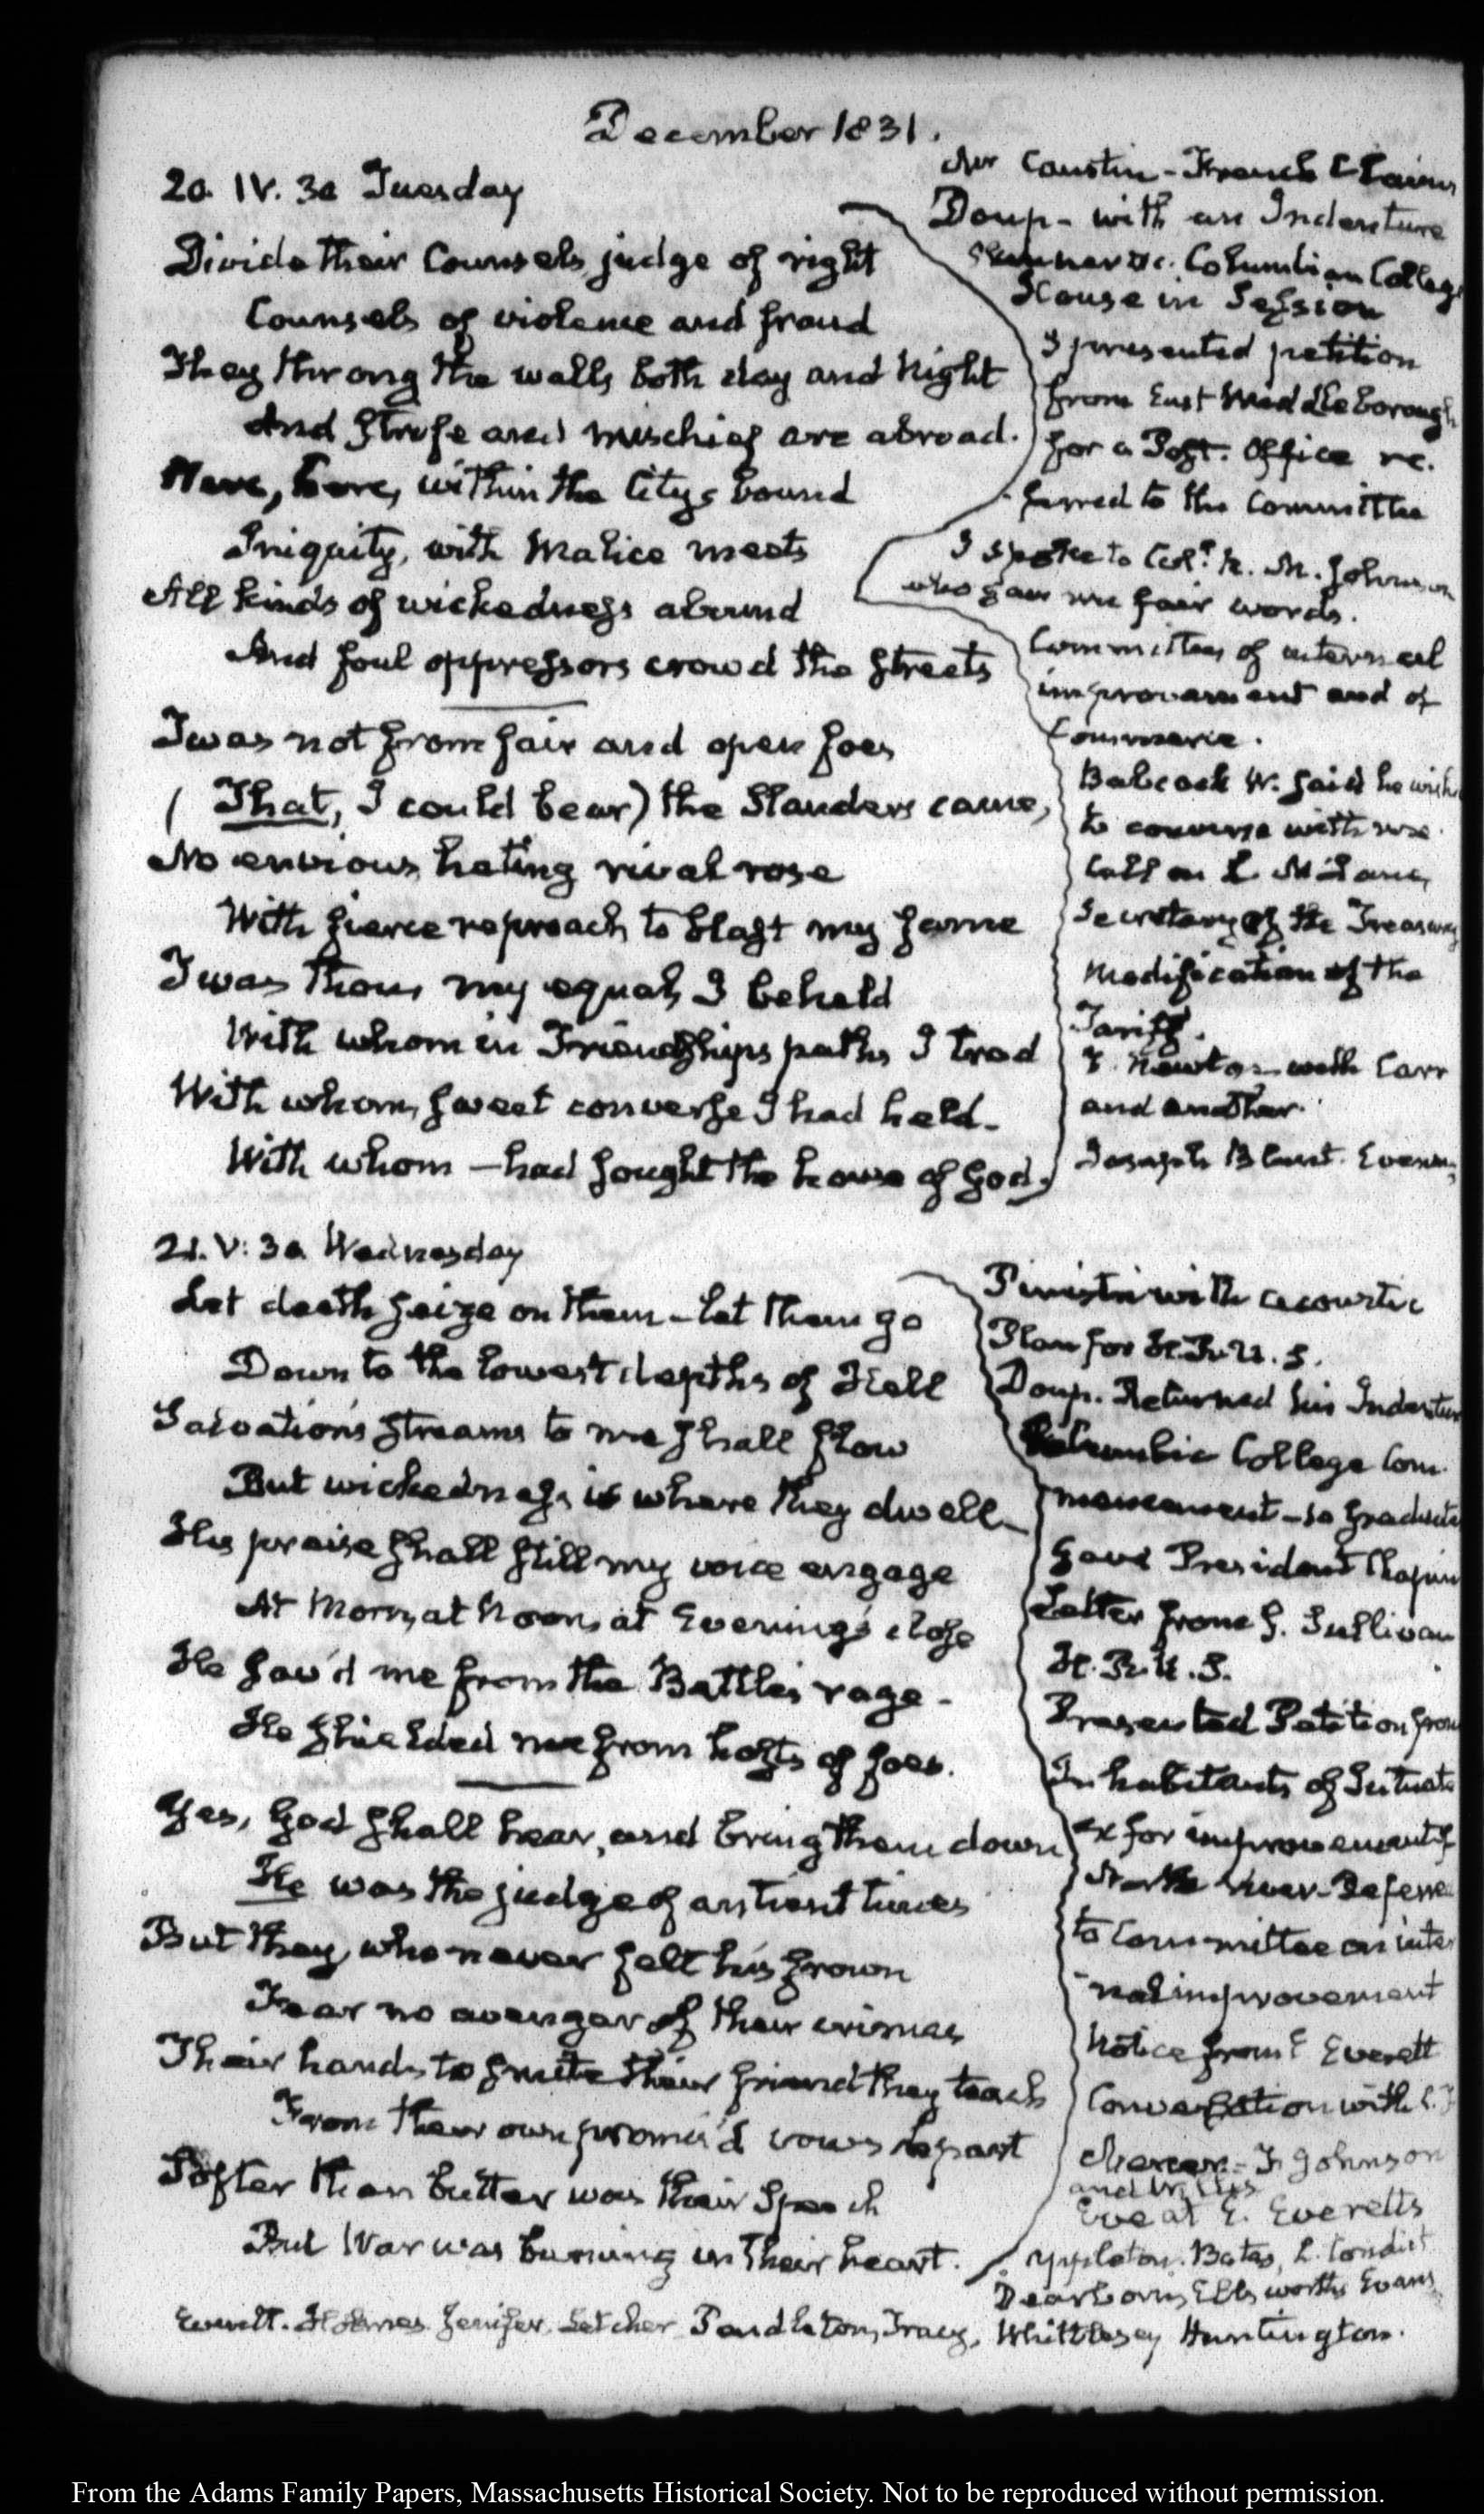 December 1831.
20. IV. 30 Tuesday
Divide their Counsels, judge of right
Counsels of violence and fraud
They throng the walls both day and night
And strife and mischief are abroad.
Here, here, within the City's bound
Iniquity, with Malice meets
All kinds of wickedness abound
And foul oppressors crowd the streets
Twas not from fair and open foes
(That, I could bear) the Slanders came,
No envious, hating rival rose
With fierce reproach, to blast my fame
Twas thou, my equal, I beheld
With whom in Friendships paths I trod
With whom, sweet converse I had held.
With whom — had sought the house of God.
Mr Caustin - French Claims
Doup - with an Indenture
&c. Columbian College
House in Session
I presented petition
from East Middleborough
for a Post. Office re.
ferred to the Committee
I spoke to Col. R. M. Johnson
who gave me fair words.
Committees of internal
improvement and of
Commerce.
Babcock W. said he wish
to converse with me.
Call on L. McLane,
Secretary of the Treasury
Modification of the
Tariff.
T. Newton with Carr
and another.
Joseph Blunt. Evening
21. V: 30. Wednesday
Let death seize on them - let them go
Down to the lowest depths of Hell
Salvation's streams to me shall flow
But wickedness is where they dwell_
His praise shall still my voice engage
At Morn, at Noon, at Evening's close
He sav'd me from the Battles rage -
He shielded me from hosts of foes.
Yes, God shall hear, and bring them down
He was the judge of antient times
But they, who never felt his frown
Fear no avenger of their crimes
Their hands to smite their friend they teach
From their own promis'd vows depart
Softer than butter was their Speech
But War was burning in their heart.
with acoustic
Plan for H.R.U.S.
Doup. Returned his Indenture
Columbia College Com.
mencement - 10 graduate
Gave President Chapin
Letter from G. Sullivan
H.R.U.S.
Presented Petition from
Inhabitants of Scituate
&c for improvement of
North River - Referred
to Committee on inter
nal improvement
Notice from E Everett
Conversation with C. F.
Mercer - F. Johnson
and
Eve at E. Everetts
Appleton. Bates, L. Condict
Dearborn, Ellsworth Evans
Everett. Holmes. Jenifer. Letcher Pendleton, Tracy, Whittlesey Huntington.
From the Adams Family Papers, Massachusetts Historical Society. Not to be reproduced without permission.